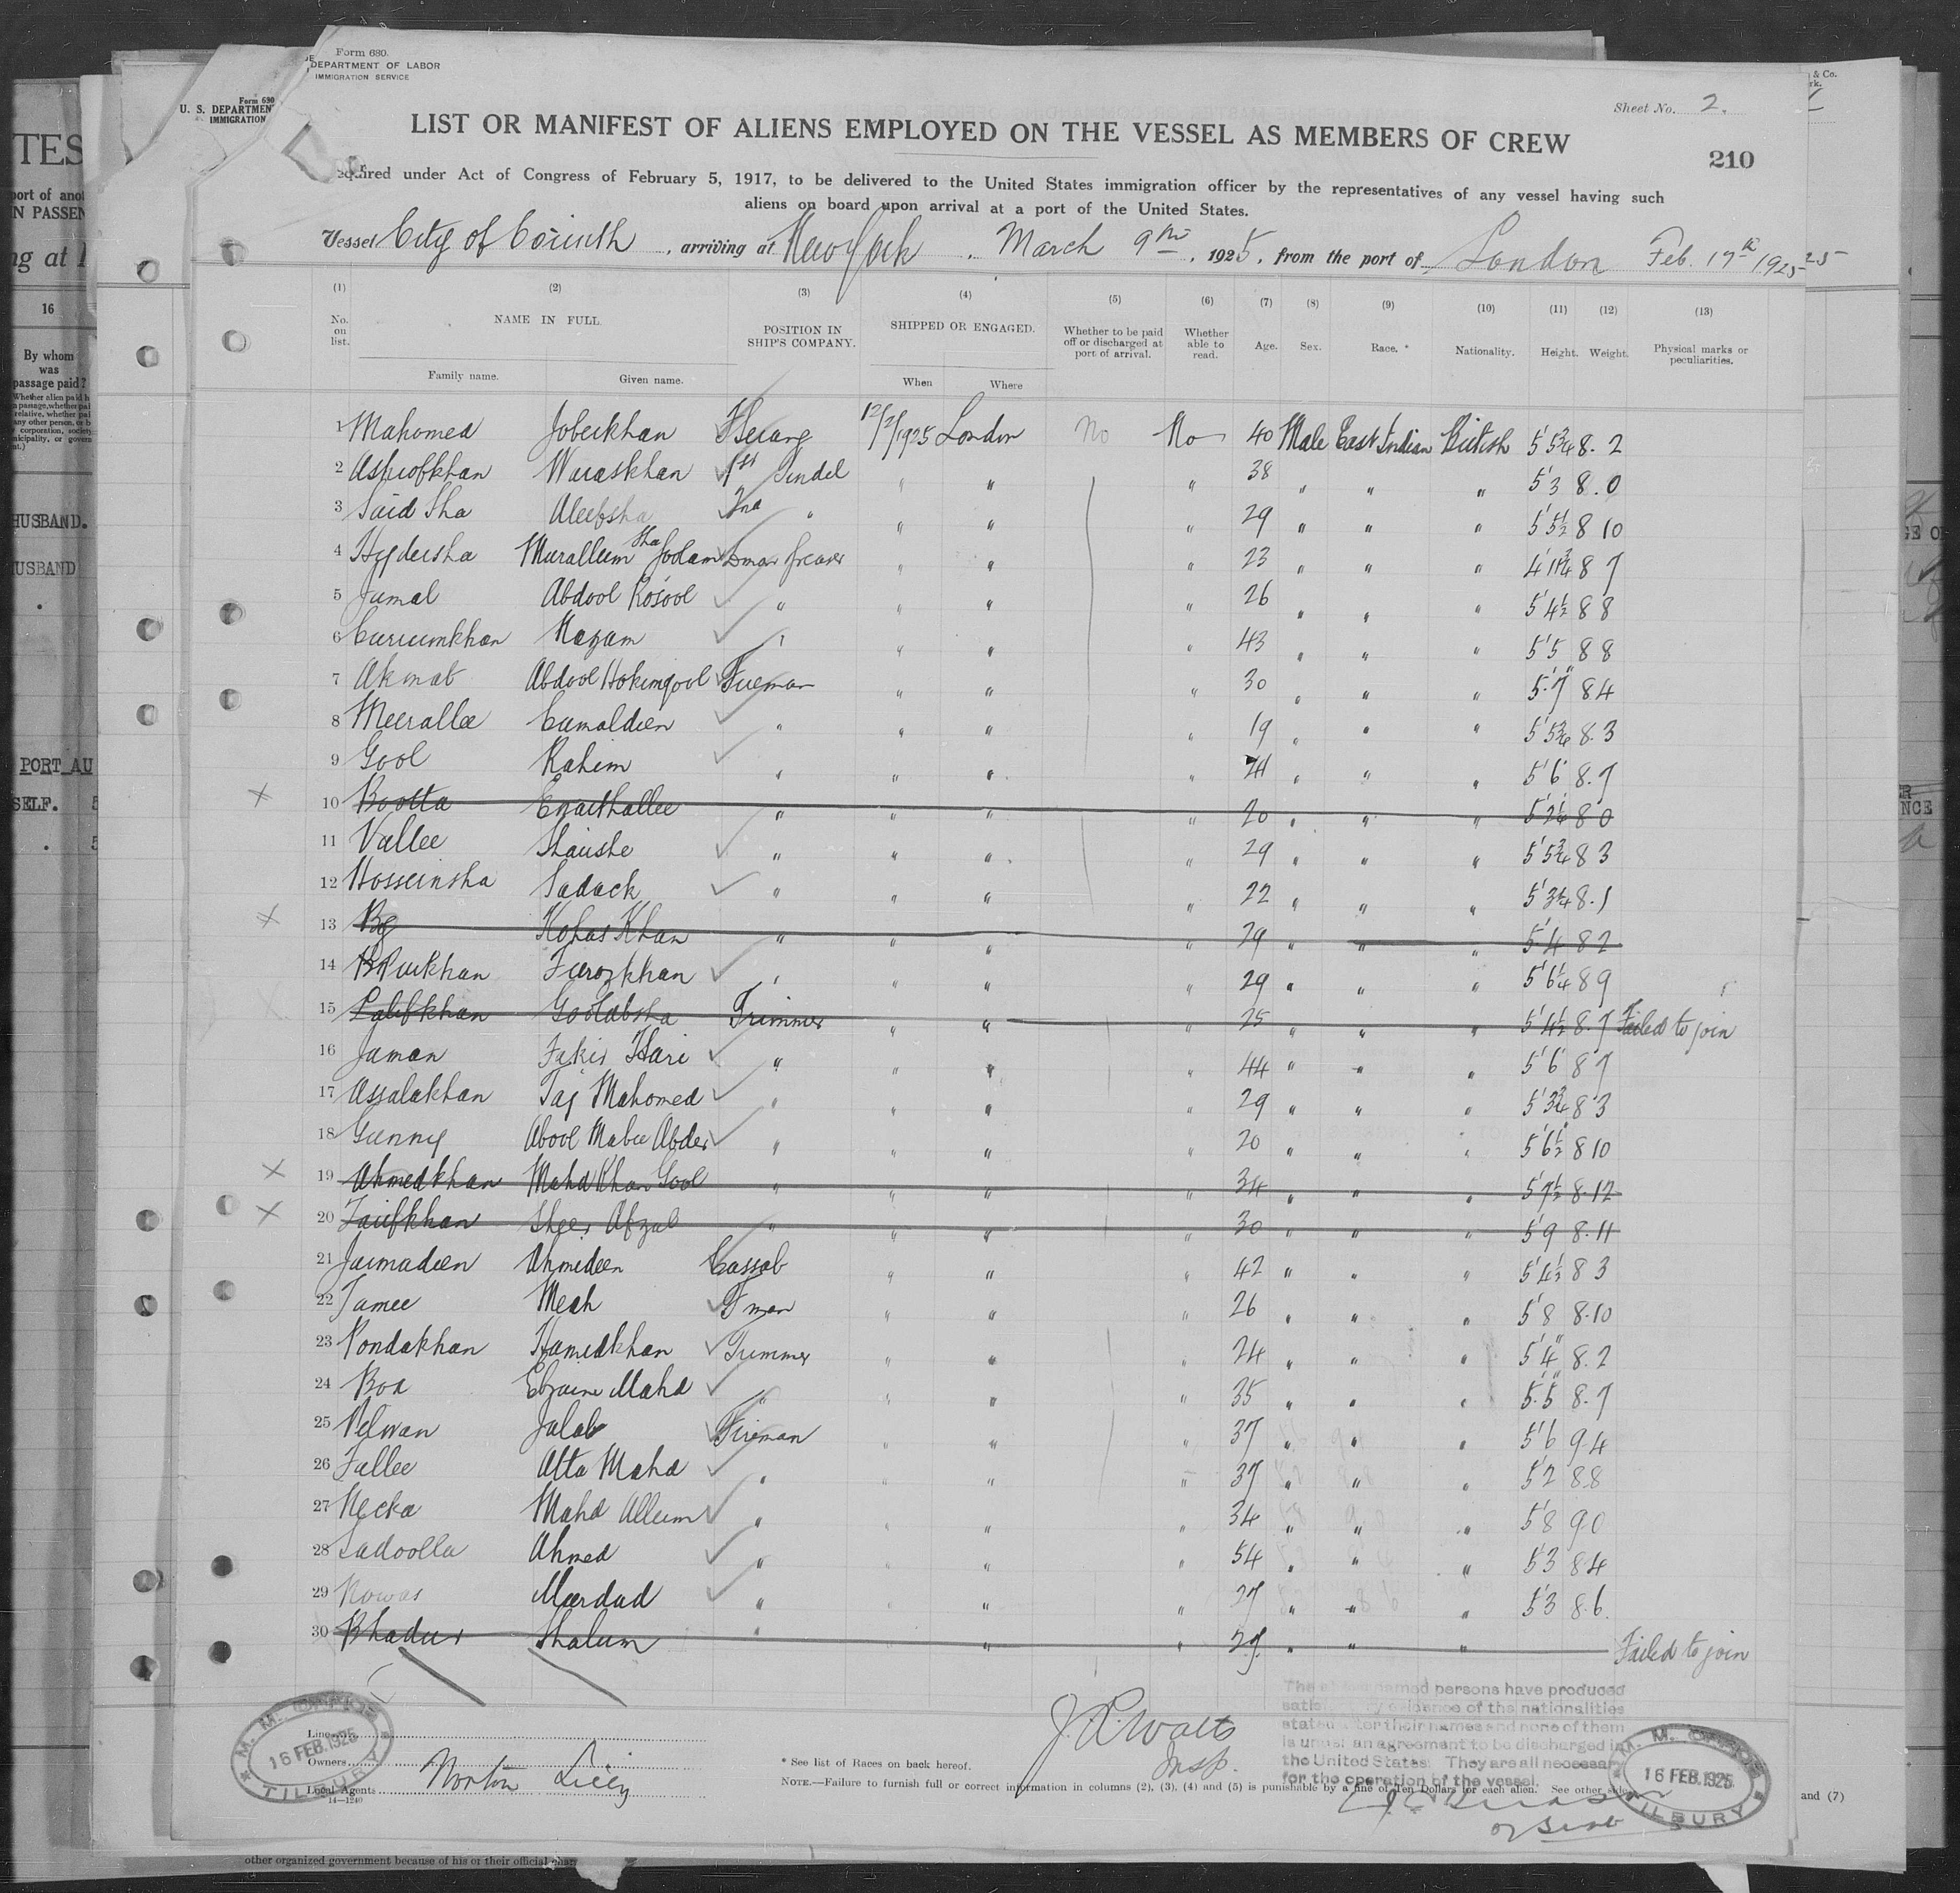 Form 680.
DEPARTMENT OF LABOR
IMMIGRATION SERVICE
Form 680
U. S. DEPARTMEN
IMMIGRATION
Sheet No. 2.
LIST OR MANIFEST OF ALIENS EMPLOYED ON THE VESSEL AS MEMBERS OF CREW
210
equired under Act of Congress of February 5, 1917, to be delivered to the United States immigration officer by the representatives of any vessel having such
aliens on board upon arrival at a port of the United States.
Vessel City of Corinth, arriving at New York, March 9th, 1925, from the port of London Feb. 17th 1925
(1) (2) (3) (4) (5) (6) (7) (8) (9) (10) (11) (12) (13)
No. on list. NAME IN FULL. POSITION IN SHIP'S COMPANY. SHIPPED OR ENGAGED. Whether to be paid off or discharged at port of arrival. Whether able to read. Age. Sex. Race. * Nationality. Height. Weight. Physical marks or peculiarities.
Family name. Given name. When Where
1 Mahomed Jobeikhan Serang 12/2/1925 London No No 40 Male East Indian British 5'5¾ 8. 2
2 Asruofkhan Waraskhan 1st Tindel " " " 38 " " " 5'3 8.0
3 Said Sha Aleebsha 2nd " " " " 29 " " " 5'5½ 8 10
4 Hydersha Murallum Sha Jodam " " " 23 " " " 8 7
5 Jumal Abdool Rosool " " " " 26 " " " 5'4½ 8 8
6 Curiumkhan Kazam " " " " 43 " " " 5'5 8 8
7 Akmat Abdool Hokimgool Fireman " " " 30 " " " 5'7" 8 4
8 Meerallee Cumaldien " " " " 19 " " " 5'5¾ 8.3
9 Gool Rahim " " " " " " " 5'6 8.7
10 Bootta Enaithallee " " " " 20 " " " 5'2¼ 8 0
11 Vallee Shaishe " " " " 29 " " " 5'5¾ 8 3
12 Hosseinsha Saduck " " " " 22 " " " 5'3¾ 8.1
13 Bg Kohas Khan " " " " 29 " " " 5'4 8 2
14 Furozkhan " " " " 29 " " " 5'6¼ 8 9
15 Lalifkhan Goolabsha Trimmer " " " 25 " " " 5'4½ 8.7 Failed to join
16 Jaman Fakir Hari " " " " 44 " " " 5'6 8 7
17 Assalakhan Taj Mahomed " " " " 29 " " " 5'3¾ 8 3
18 Gunny Abool Mabu Abder " " " " 20 " " " 5'6½ 8 10
19 Ahmedkhan Mahd Khan Gool " " " " 34 " " " 5'7½ 8.12
20 Taifkhan Sheer Afzal " " " " 30 " " " 5'9 8.11
21 Jaimadeen Ahmedeen Cassab " " " 42 " " " 5'4½ 8 3
22 Jamee Meah Fman " " " 26 " " " 5'8 8.10
23 Pondakhan Hamedkhan Trimmer " " " 24 " " " 5'4" 8.2
24 Boa Mahd " " " " 35 " " " 5'5" 8.7
25 Pelwan Jalab Fireman " " " 37 " " " 5'6 9 4
26 Fallee Atta Mahd " " " " 37 " " " 5'2 8 8
27 Necka Mahd Allum " " " " 34 " " " 5'8 9 0
28 Sadoolla Ahmed " " " " 54 " " " 5'3 8 4
29 Nowas Meerdad " " " " 27 " " " 5'3 8.6.
30 Bhadur Shalum " " " " 27 " " " Failed to join
Line
Owners
Local Agents Norton Lilly
14—1240
J. R. Watts
Insp.
* See list of Races on back hereof.
NOTE.—Failure to furnish full or correct information in columns (2), (3), (4) and (5) is punishable by a fine of Ten Dollars for each alien. See other side
The above named persons have produced
satisfactory evidence of the nationalities
stated after their names and none of them
is under an agreement to be discharged in
the United States. They are all necessary
for the operation of the vessel.
16 FEB. 1925
TILBURY
16 FEB. 1925
TILBURY
and (7)
TES
port of anot
IN PASSEN
ng at
16
By whom
was
passage paid?
HUSBAND.
HUSBAND
PORT AU
SELF.
other organized government because of his or their official char
& Co.